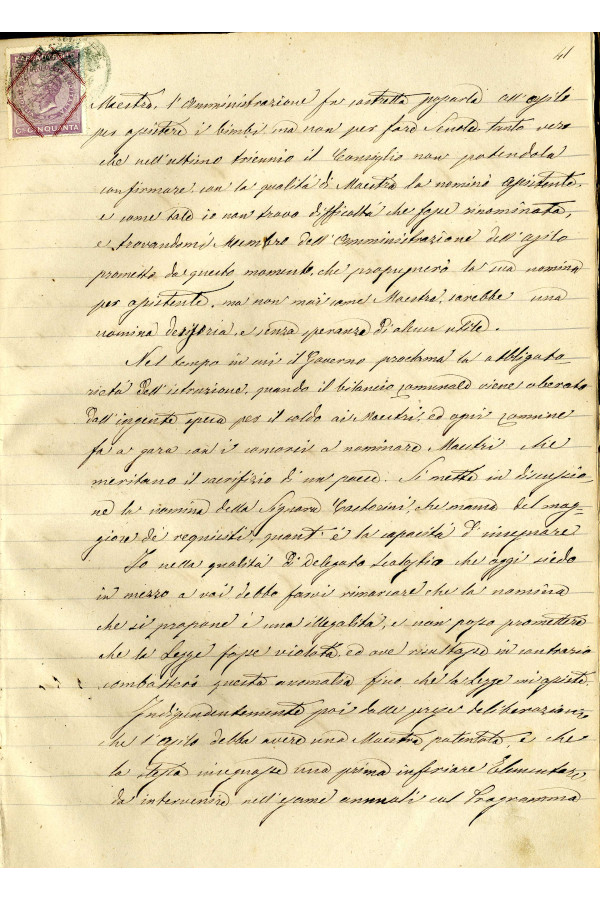 41
MARCA DA BOLLO
CI CINQUANTA
Maestra, l'Amministrazione fu costretta pagarla all'Asilo
per assistere i bimbi, ma non per fare scuola tanto vero
che nell'ultimo triennio il Consiglio non potendola
confirmare con la qualità di Maestra la nominò assistente,
e come tale io non trovo difficoltà che fosse rinominata,
e trovandomi Membro dell'Amministrazione dell'Asilo
prometto da questo momento, che propugnerò la sua nomina
per assistente, ma non mai come Maestra, sarebbe una
nomina derisoria, e senza speranza di alcun utile.
Nel tempo in cui il Governo proclama la obbligato
rietà dell'istruzione, quando il bilancio comunale viene oberato
dall'ingente spesa per il soldo ai Maestri, ed ogni Comune
fa a gara con i concorsi a nominare Maestri che
meritano il sacrifizio di un paese. Si mette in discussio-
ne la nomina della Signora Castorini, che manca del mag-
giore dei requisiti, quant'è la capacità d'insegnare
Io nella qualità di Delegato Scolastico che oggi siedo
in mezzo a voi debbo farvi rimarcare che la nomina
che si propone è una illegalità, e non posso promettere
che la Legge fosse violata, ed ove risultasse in contrario
combatterò questa anomalia fino che la Legge mi assiste.
Indipendentemente poi dalle prese deliberazioni
che l'Asilo debba avere una Maestra patentata, e che
la stessa insegnasse una prima inferiore Elementare
da intervenire nell'esame annuali sul Programma